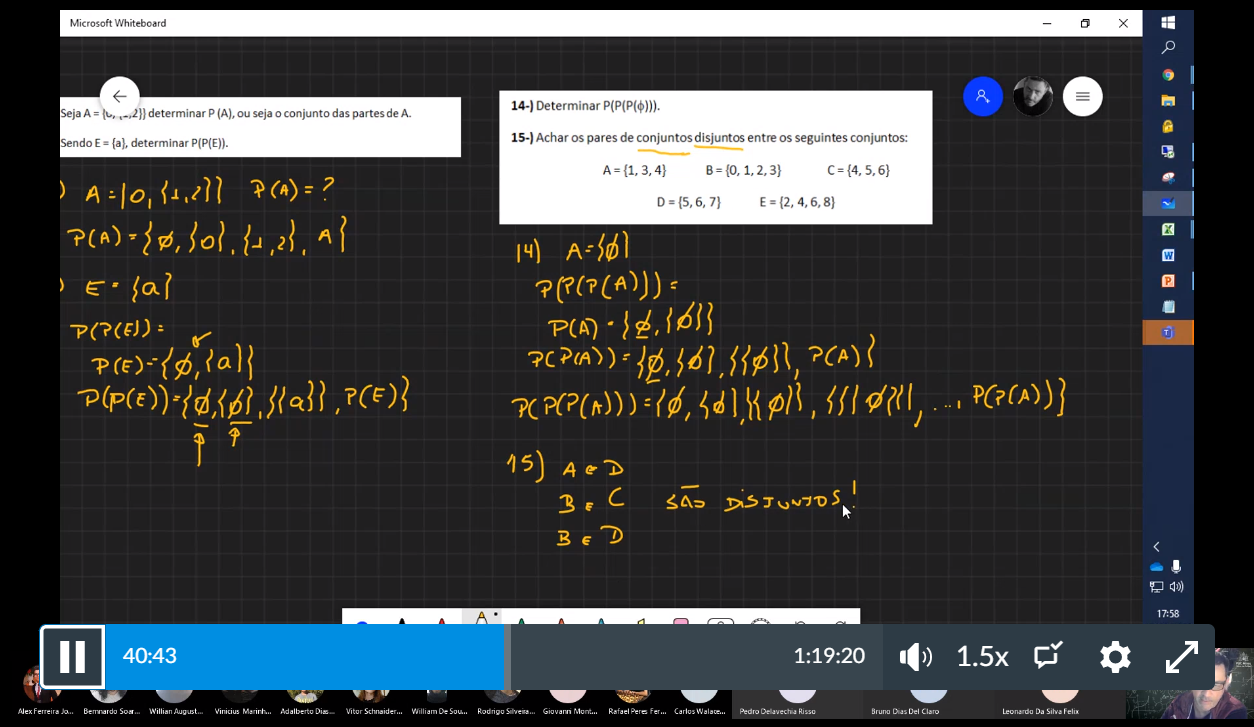 Microsoft Whiteboard
Seja A = {0, {1,2}} determinar P (A), ou seja o conjunto das partes de A.
Sendo E = {a}, determinar P(P(E)).
14-) Determinar P(P(P(ϕ))).
15-) Achar os pares de conjuntos disjuntos entre os seguintes conjuntos:
A = {1, 3, 4} B = {0, 1, 2, 3} C = {4, 5, 6}
D = {5, 6, 7} E = {2, 4, 6, 8}
) A = {0, {1,2}} P(A) = ?
P(A) = {ϕ, {0}, {1,2}, A}
) E = {a}
P(P(E)) =
P(E) = {ϕ, {a}}
P(P(E)) = {ϕ, {ϕ}, {{a}}, P(E)}
14) A = {ϕ}
P(P(P(A))) =
P(A) = {ϕ, {ϕ}}
P(P(A)) = {ϕ, {ϕ}, {{ϕ}}, P(A)}
P(P(P(A))) = {ϕ, {ϕ}, {{ϕ}}, {{{ϕ}}}, ..., P(P(A))}
15) A e D
B e C SÃO DISJUNTOS!
B e D
17:58
40:43 1:19:20 1.5x
Alex Ferreira Jo... Bernnardo Soar... Willian August... Vinicius Marinh... Adalberto Dias... Vitor Schnaider... William De Sou... Rodrigo Silveira... Giovanni Mont... Rafael Peres Fer... Carlos Walace... Pedro Delavechia Risso Bruno Dias Del Claro Leonardo Da Silva Felix